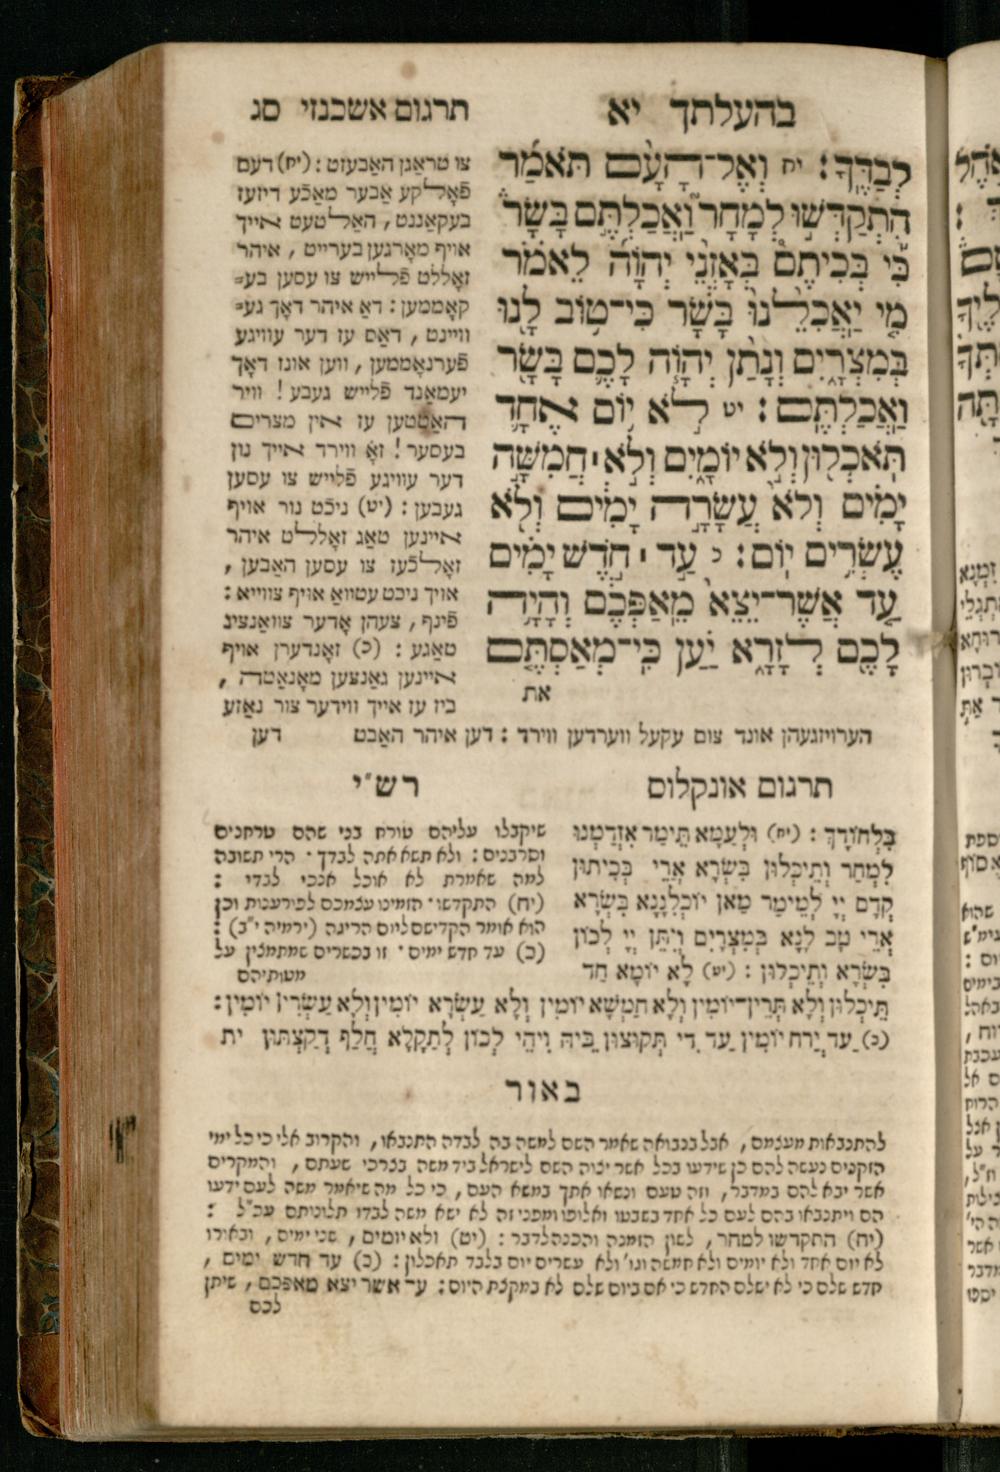 בהעלתך יא
תרגום אשכנזי סג
לְבַדֶּךָ: יח וְאֶל־הָעָם תֹּאמַר
הִתְקַדְּשׁוּ לְמָחָר וַאֲכַלְתֶּם בָּשָׂר
כִּי בְּכִיתֶם בְּאָזְנֵי יְהוָֹה לֵאמֹר
מִי יַאֲכִלֵנוּ בָּשָׂר כִּי־טוֹב לָנוּ
בְּמִצְרָיִם וְנָתַן יְהוָֹה לָכֶם בָּשָׂר
וַאֲכַלְתֶּם: יט לֹא יוֹם אֶחָד
תֹּאכְלוּן וְלֹא יוֹמָיִם וְלֹא ׀ חֲמִשָּׁה
יָמִים וְלֹא עֲשָׂרָה יָמִים וְלֹא
עֶשְׂרִים יוֹם: כ עַד ׀ חֹדֶשׁ יָמִים
עַד אֲשֶׁר־יֵצֵא מֵאַפְּכֶם וְהָיָה
לָכֶם לְזָרָא יַעַן כִּי־מְאַסְתֶּם
את
צו טראַגן האַבעזט: (יח) דעם
פֿאָלקע אַבער מאַכֿע דיזעז
בעקאַננט, האַלטעט אייך
אויף מאָרגען בערייט, איהר
זאָללט פֿלייש צו עסען בע⸗
קאָממען: דאַ איהר דאָך גע⸗
וויינט, דאַס עז דער עוויגע
פֿערנאָממען, ווען אונז דאָך
יעמאַנד פֿלייש געבע! וויר
האַטטען עז אין מצרים
בעסער! זאָ ווירד אייך נון
דער עוויגע פֿלייש צו עסען
געבען: (יט) ניכֿט נור אויף
איינען טאַג זאָללט איהר
זאָלכֿעז צו עסען האַבען,
אויך ניכט עטוואַ אויף צווייא:
פֿינף, צעהן אָדער צוואַנציג
טאַגע: (כ) זאָנדערן אויף
איינען גאַנצען מאָנאַטה,
ביז עז אייך ווידער צור נאַזע
הערויזגעהן אונד צום עקעל ווערדען ווירד: דען איהר האַבט דען
תרגום אונקלוס
בִּלְחוֹדָךְ: (יח) וּלְעַמָּא תֵּימַר אִזְדַּמָּנוּ
לִמְחַר וְתֵיכְלוּן בִּשְׂרָא אֲרֵי בְּכֵיתוּן
קֳדָם יְיָ לְמֵימַר מַאן יוֹכְלִנָּנָא בִּשְׂרָא
אֲרֵי טַב לָנָא בְּמִצְרָיִם וְיִתֵּן יְיָ לְכוֹן
בִּשְׂרָא וְתֵיכְלוּן: (יט) לָא יוֹמָא חַד
תֵּיכְלוּן וְלָא תְּרֵין־יוֹמִין וְלָא חַמְשָׁא יוֹמִין וְלָא עַשְׂרָא יוֹמִין וְלָא עַשְׂרִין יוֹמִין:
(כ) עַד יְרַח יוֹמִין עַד דִּי תְּקוּצוּן בֵּיהּ וִיהֵי לְכוֹן לְתַקָלָא חֲלַף דְּקַצְתּוּן יָת
רש״י
שיקבלו עליהם טורח בני שהם טרחנים
וסרבנים: ולא תשא אתה לבדך · הרי תשובה
למה שאמרת לא אוכל אנכי לבדי:
(יח) התקדשו · הזמינו עצמכם לפורענות וכן
הוא אומר הקדישם ליום הריגה (ירמיה י״ב):
(כ) עד חדש ימים · זו בכשרים שמתמצין על
מטותיהם
באור
להתנבאות מעצמם, אבל בנבואה שאמר השם למשה בה לבדה התנבאו, והקרוב אלי כי כל ימי
הזקנים נעשה להם כן שידעו בכל אשר יצוה השם לישראל ביד משה בצרכי שעתם, והמקרים
אשר יבא להם במדבר, וזה טעם ונשאו אתך במשא העם, כי כל מה שיאמר משה לעם ידעו
הם ויתנבאו בהם לעם כל אחד בשבטו ואלופו ומפני זה לא ישא משה לבדו תלונותם עכ״ל:
(יח) התקדשו למחר, לשון הזמנה והכנה לדבר: (יט) ולא יומים, שני ימים, ובאורו
לא יום אחד ולא יומים ולא חמשה וגו' ולא עשרים יום בלבד תאכלון: (כ) עד חדש ימים,
חדש שלם כי לא ישלם החדש כי אם ביום שלם לא במקצת היום: עד אשר יצא מאפכם, שיתן
לכם